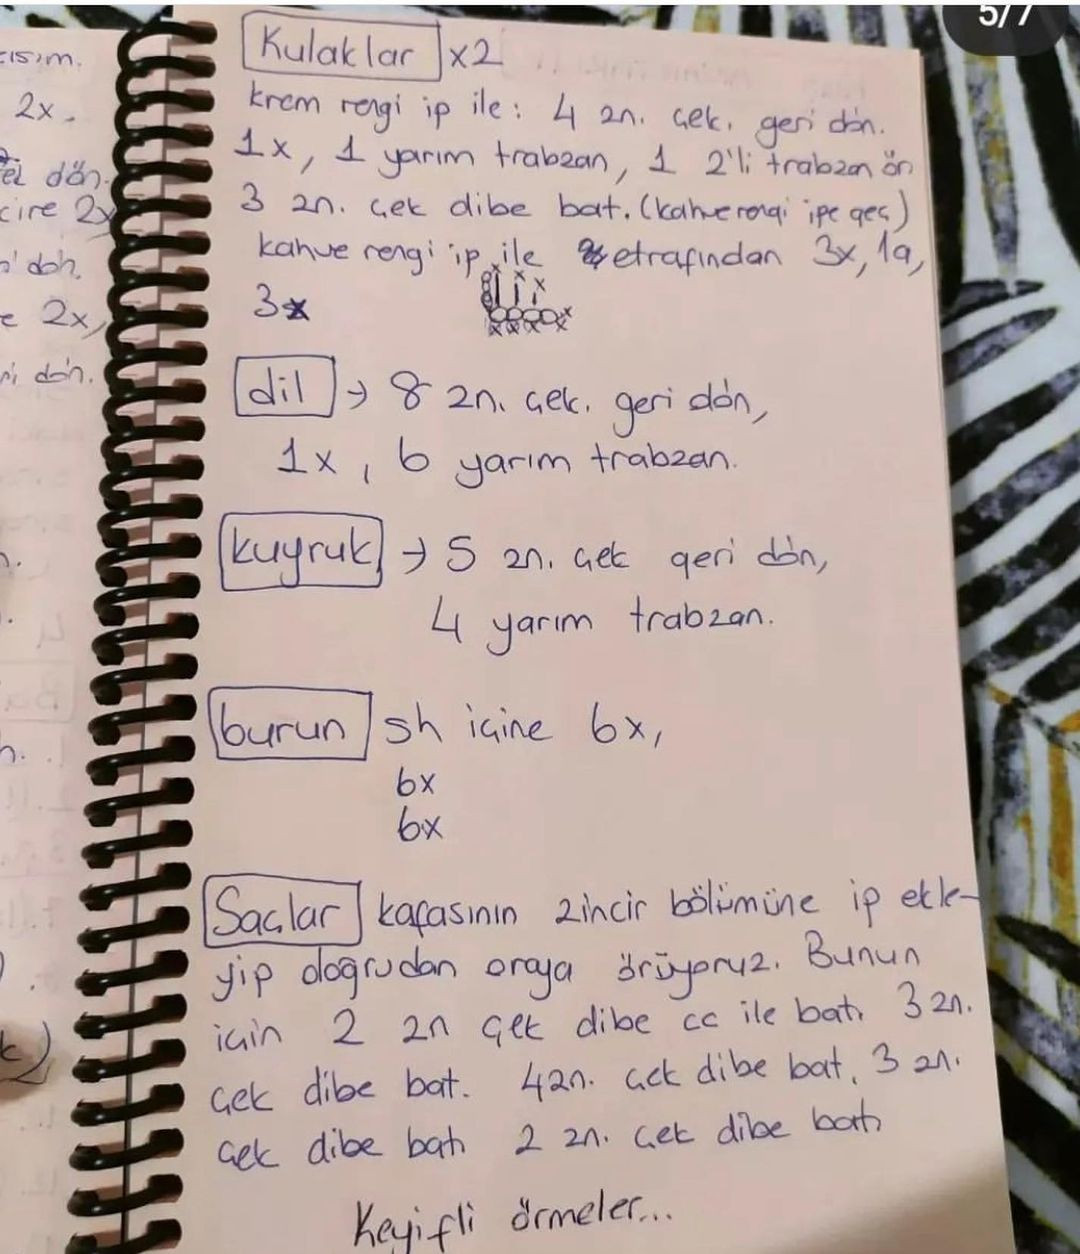 5/7
Kulaklar x2
krem rengi ip ile: 4 zn. çek. geri dön.
1x, 1 yarım trabzan, 1 2'li trabzan ör
3 zn. çek dibe bat. (kahverengi ipe geç)
kahve rengi ip ile etrafından 3x, 1a,
3x
dil → 8 zn. çek. geri dön,
1x, 6 yarım trabzan.
kuyruk → 5 zn. çek geri dön,
4 yarım trabzan.
burun sh içine 6x,
6x
6x
Saçlar kafasının zincir bölümüne ip ekle-
yip doğrudan oraya örüyoruz. Bunun
için 2 zn çek dibe cc ile batı 3 zn.
çek dibe bat. 4zn. çek dibe bat. 3 zn.
çek dibe batı 2 zn. çek dibe batı
Keyifli örmeler...
2x.
dön.
2x
2x,
dön.